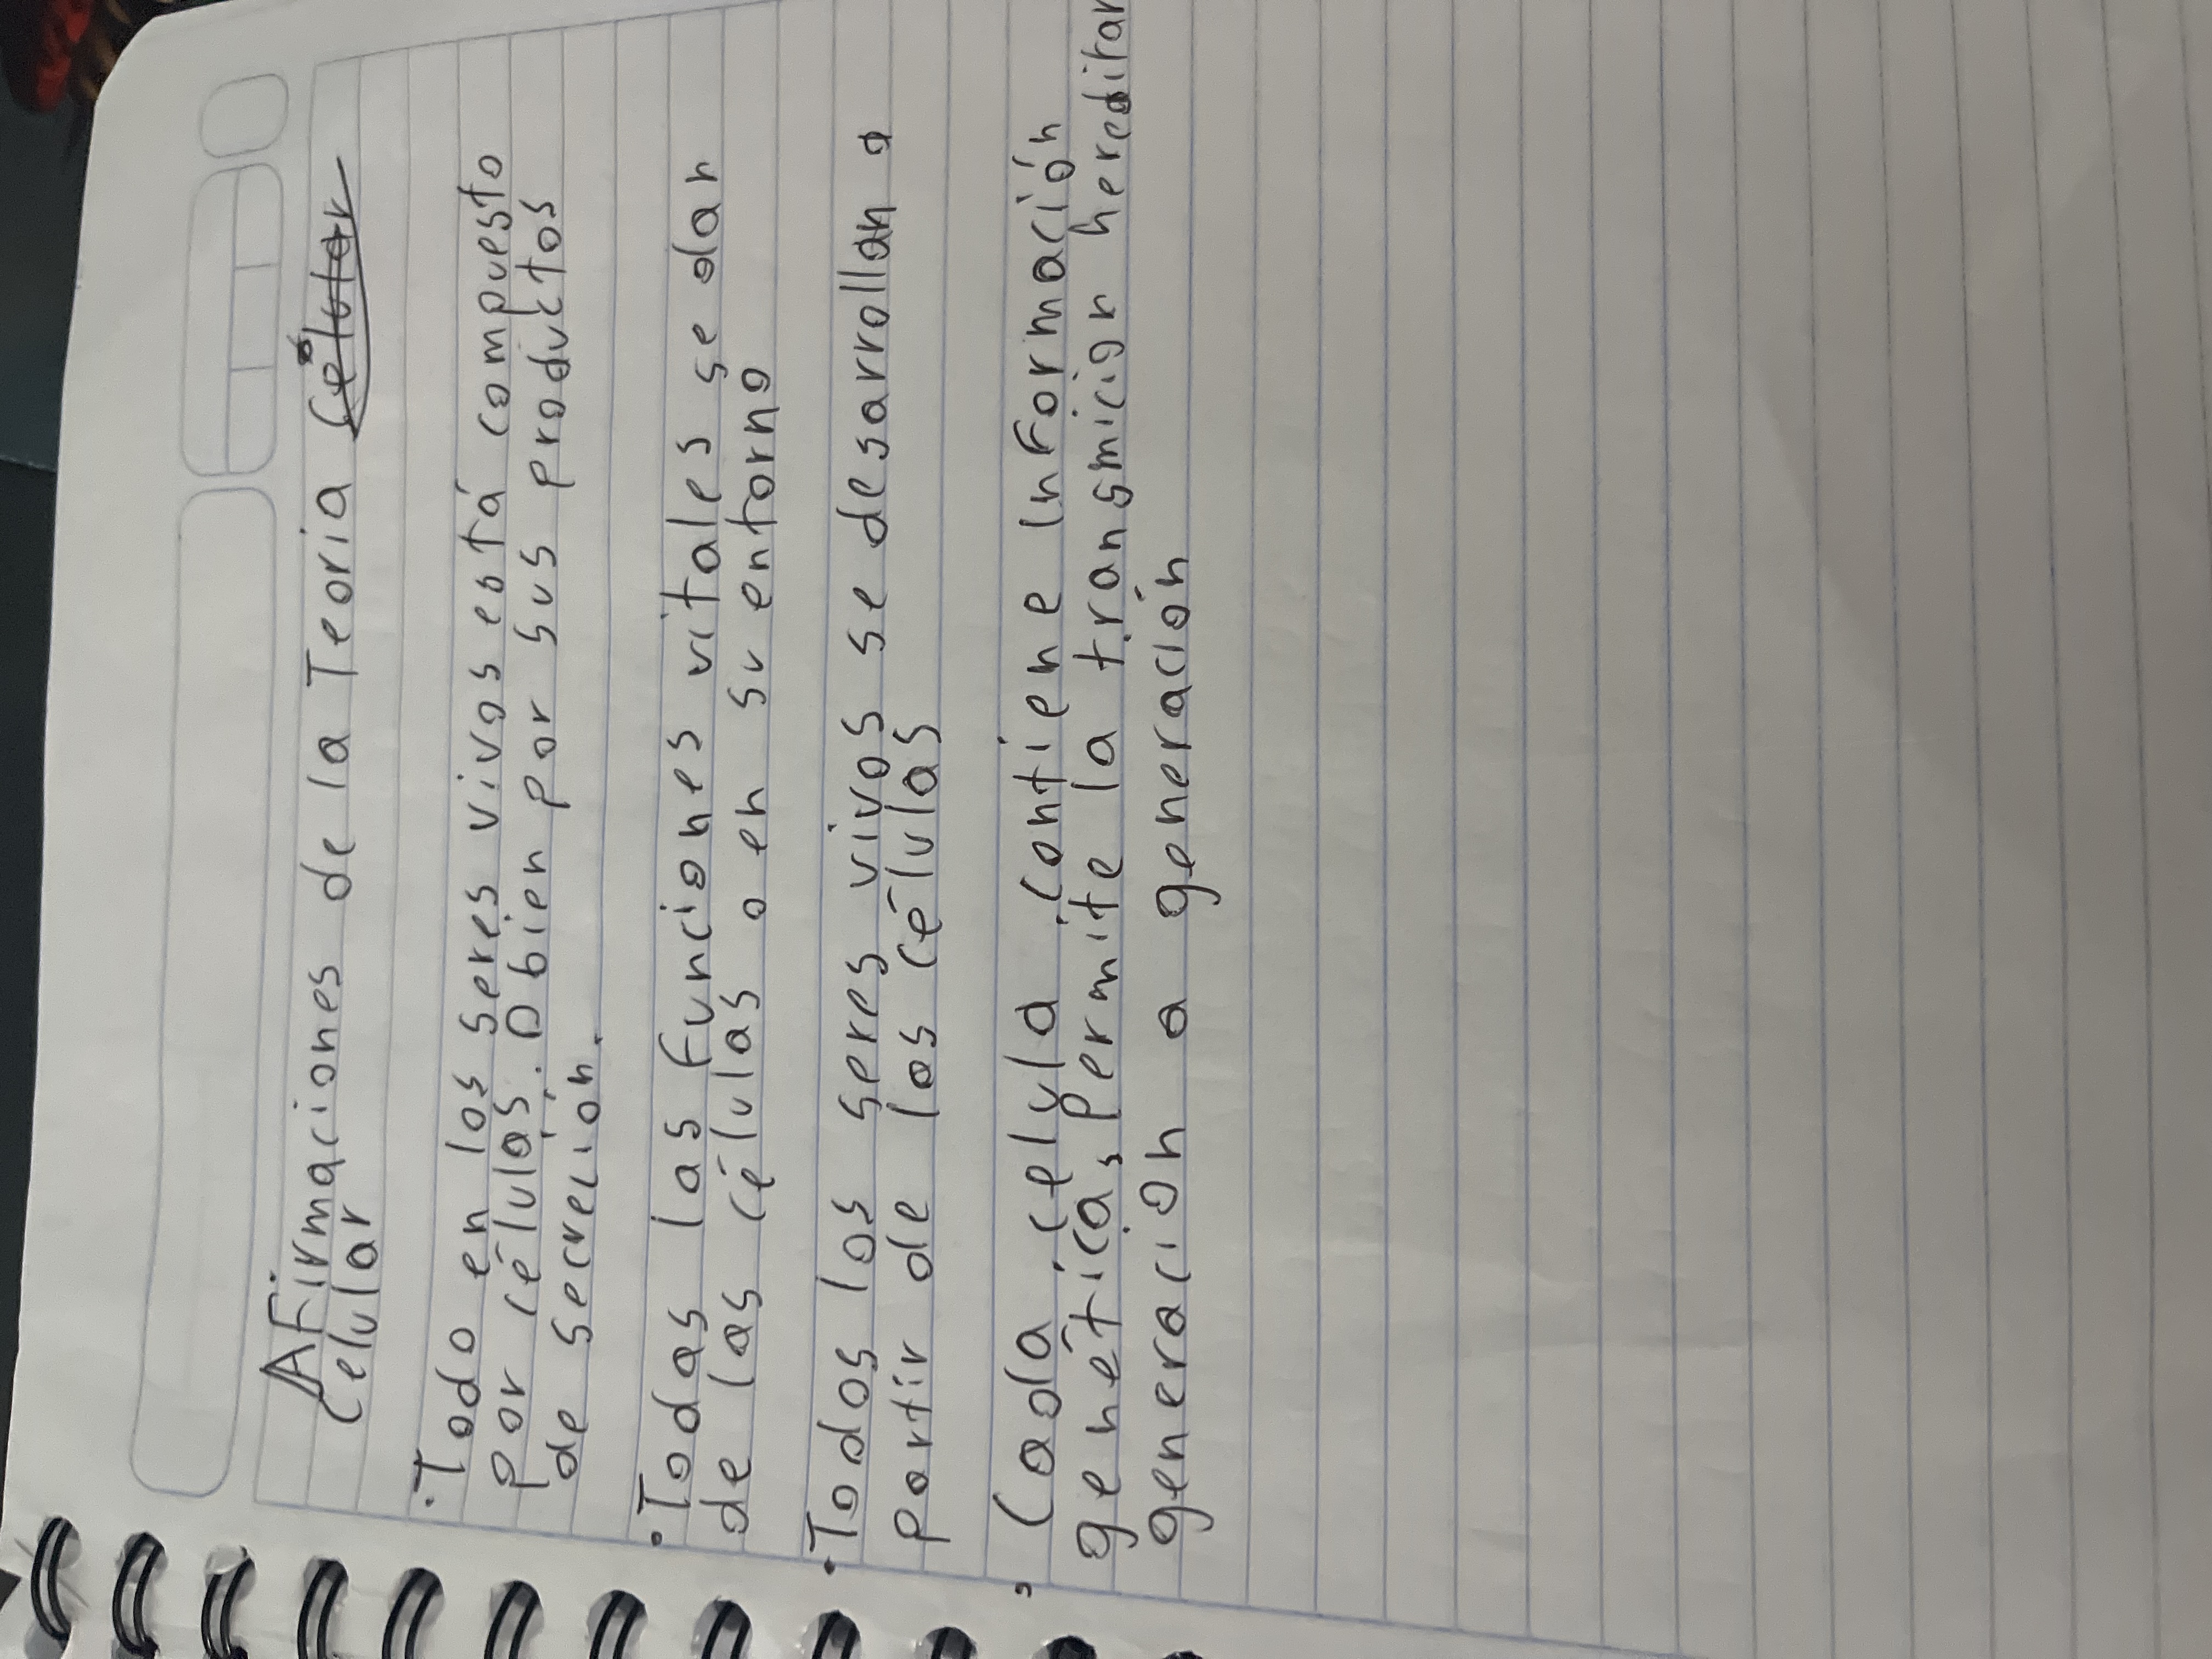 AFirmaciones de la Teoria
Celular
· Todo en los seres vivos está compuesto
por células. O bien por sus productos
de secreción.
· Todas las Funciones vitales se dan
de las células o en su entorno
· Todos los seres vivos se desarrollan a
partir de las células
· Cada celula contiene InFormación
genética, Permite la transmicion hereditar
generación a generación